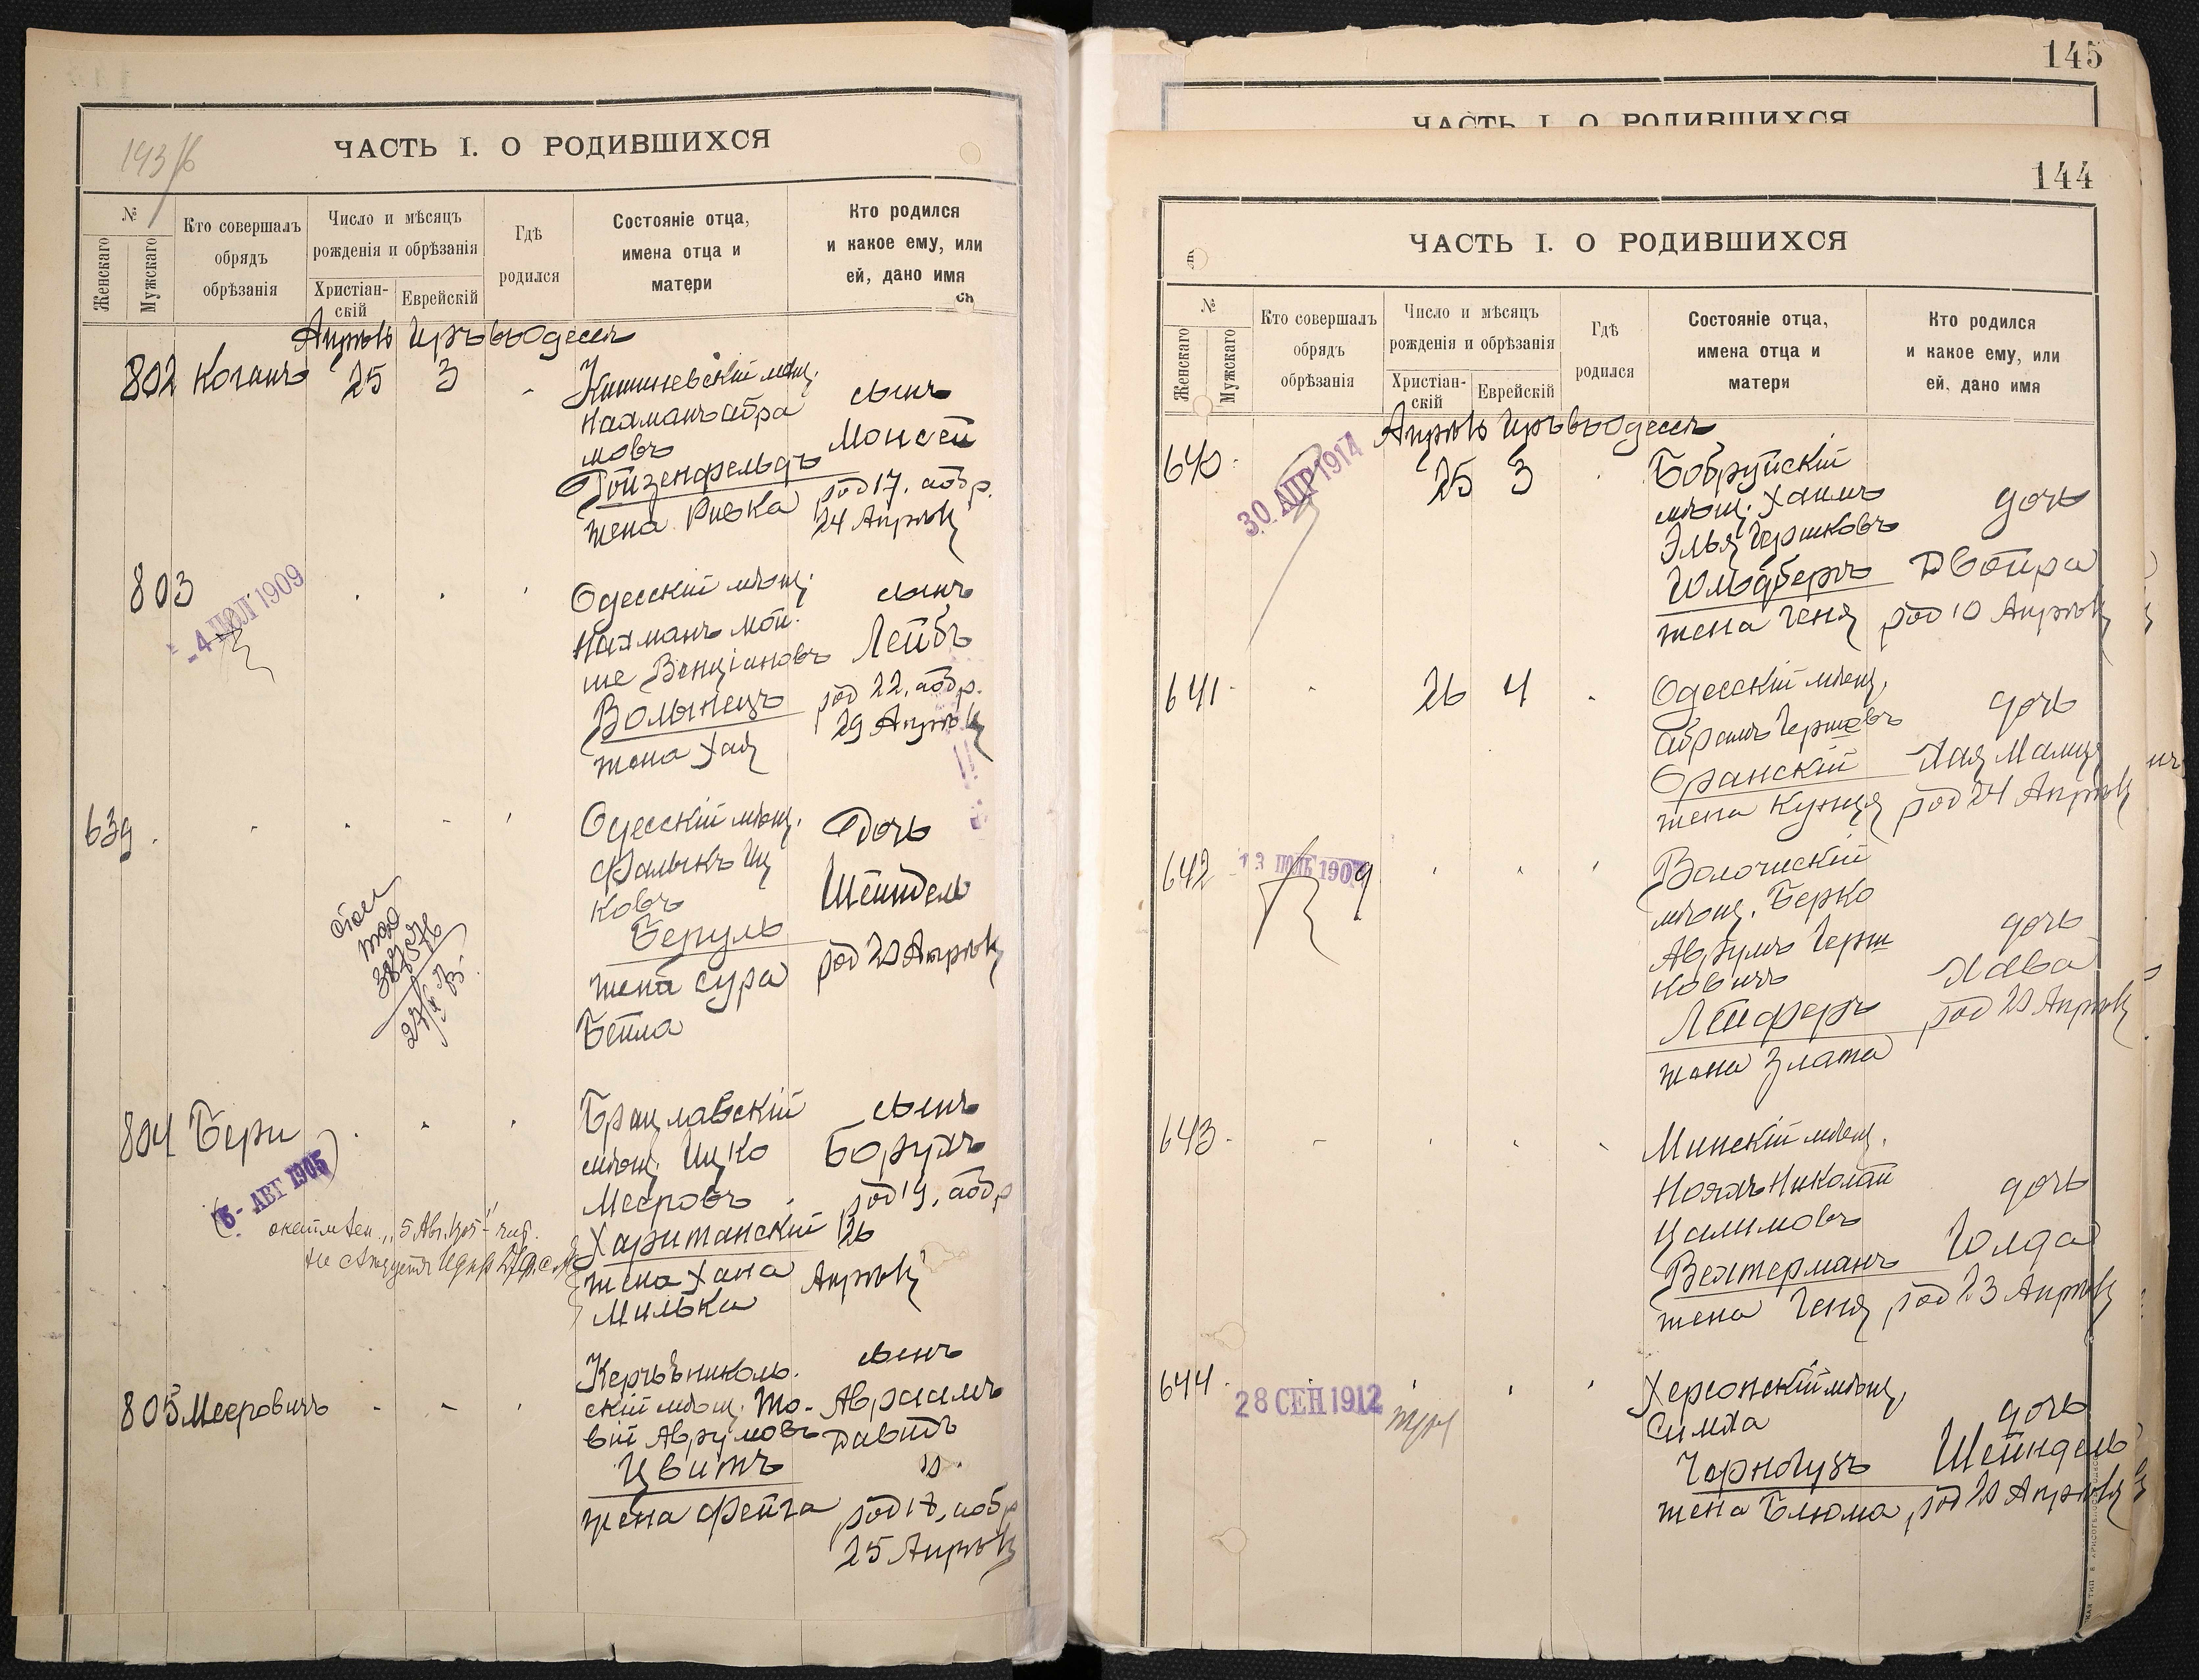 143/б
ЧАСТЬ I. О РОДИВШИХСЯ
№
Женскаго
Мужскаго
Кто совершалъ
обрядъ
обрѣзанія
Число и мѣсяцъ
рожденія и обрѣзанія
Христіан-
скій
Еврейскій
Гдѣ
родился
Состояніе отца,
имена отца и
матери
Кто родился
и какое ему, или
ей, дано имя
ся
Апрѣль Иръ въ Одессѣ
802 Коганъ 25 3
Кишиневскій мѣщ.
Нахманъ Абра
мовъ
Гойзенфельдъ
жена Ривка
сынъ
Моисей
род 17, аобр.
24 Апрѣля
803
4 ИЮЛ 1909
Одесскій мѣщ.
Нахманъ Мой-
ше Бенціановъ
Волынецъ
жена Хая
сынъ
Лейбъ
род 22, аобр.
29 Апрѣля
639
Одесскій мѣщ.
Фалыкъ Иц
ковъ
Беруль
жена Сура
Бейла
дочь
Шейндель
род 20 Апрѣля
804 Бери
5 - АВГ 1905
Брацлавскій
мѣщ. Ицко
Мееровъ
Хаританскій
жена Хана
Милька
сынъ
Борухъ
род 19, аобр
26
Апрѣля
805 Мееровичъ
Керчьѣниколь-
скій мѣщ. То-
вій Аврумовъ
Цвитъ
жена Фейга
сынъ
Авраамъ
Давидъ
род 18, аобр
25 Апрѣля
145
ЧАСТЬ I. О РОДИВШИХСЯ
144
ЧАСТЬ I. О РОДИВШИХСЯ
№
Женскаго
Мужскаго
Кто совершалъ
обрядъ
обрѣзанія
Число и мѣсяцъ
рожденія и обрѣзанія
Христіан-
скій
Еврейскій
Гдѣ
родился
Состояніе отца,
имена отца и
матери
Кто родился
и какое ему, или
ей, дано имя
Апрѣль Иръ въ Одессѣ
640
30 АПР 1914
25 3
Бобруйскій
мѣщ. Хаимъ
Элья Гершковъ
Гольдберъ
жена Геня
дочь
Двойра
род 10 Апрѣля
641 26 4
Одесскій мѣщ.
Абрамъ Гершковъ
Оранскій
жена Кунця
дочь
Хая Малця
род 24 Апрѣля
642
13 1909
Волочискій
мѣщ. Берко
Аврумъ Герш
ковичъ
Лейферъ
жена Злата
дочь
Хава
род 20 Апрѣля
643
Минскій мѣщ.
Ноахъ Николай
Цалимовъ
Вехтерманъ
жена Геня
дочь
Голда
род 23 Апрѣля
644
28 СЕН 1912
Херсонскій мѣщ.
Симха
Чорногузъ
жена Блюма
дочь
Шейндель
род 20 Апрѣля